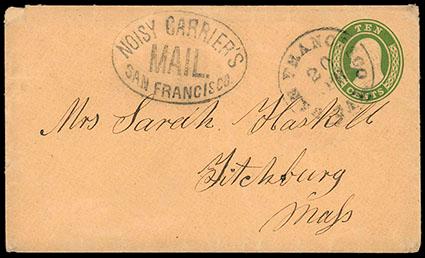 NOISY CARRIER'S
MAIL.
SAN FRANCISCO.
SAN FRANCISCO
20
TEN
CENTS
Mrs Sarah Haskell
Fitchburg
Mass